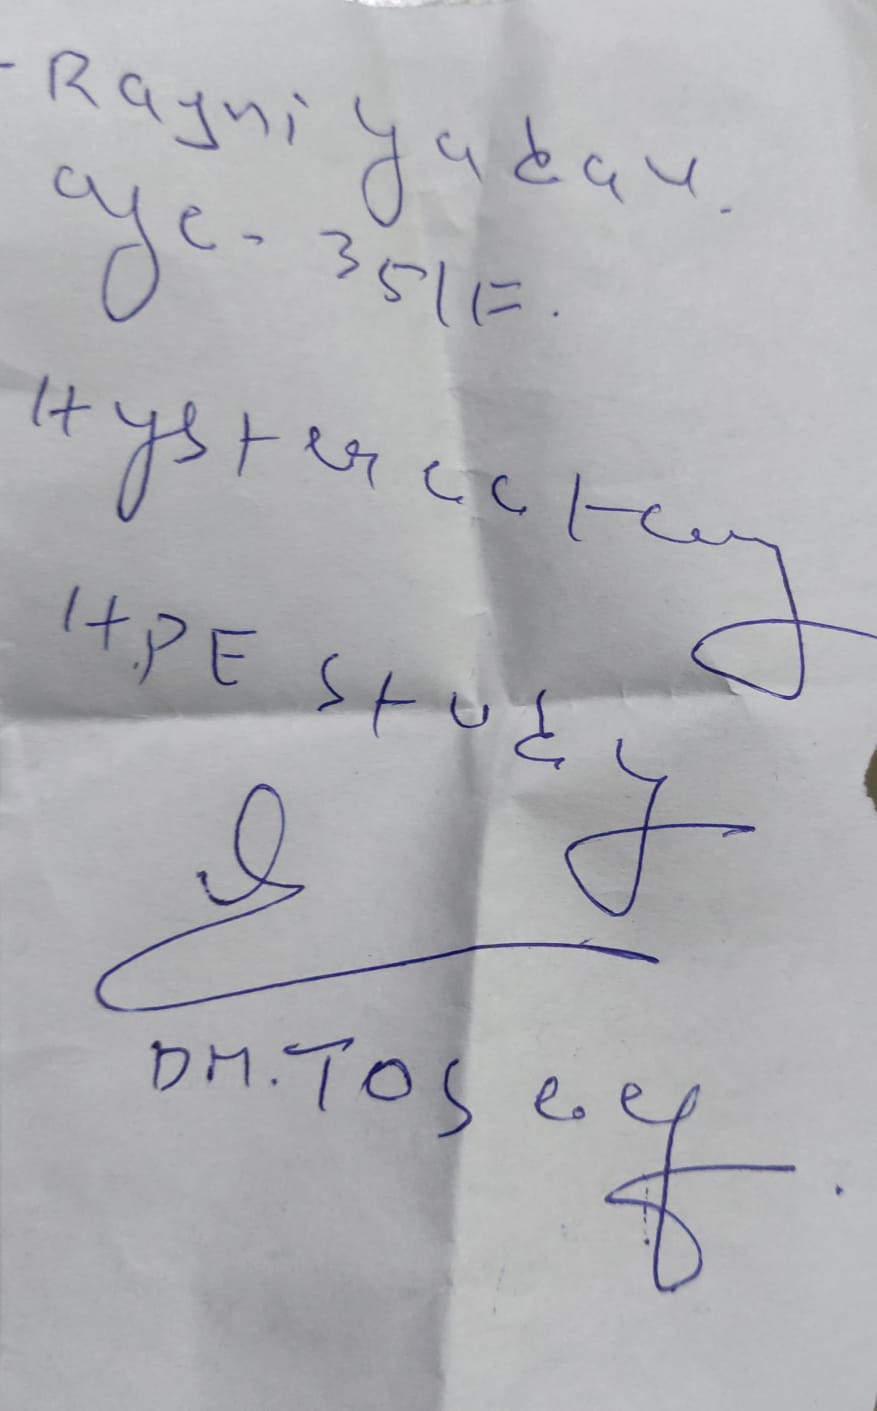 - Rayni yadav.
age - 35/F.
Hysterectomy
H.P E study
DR. TOSeef.